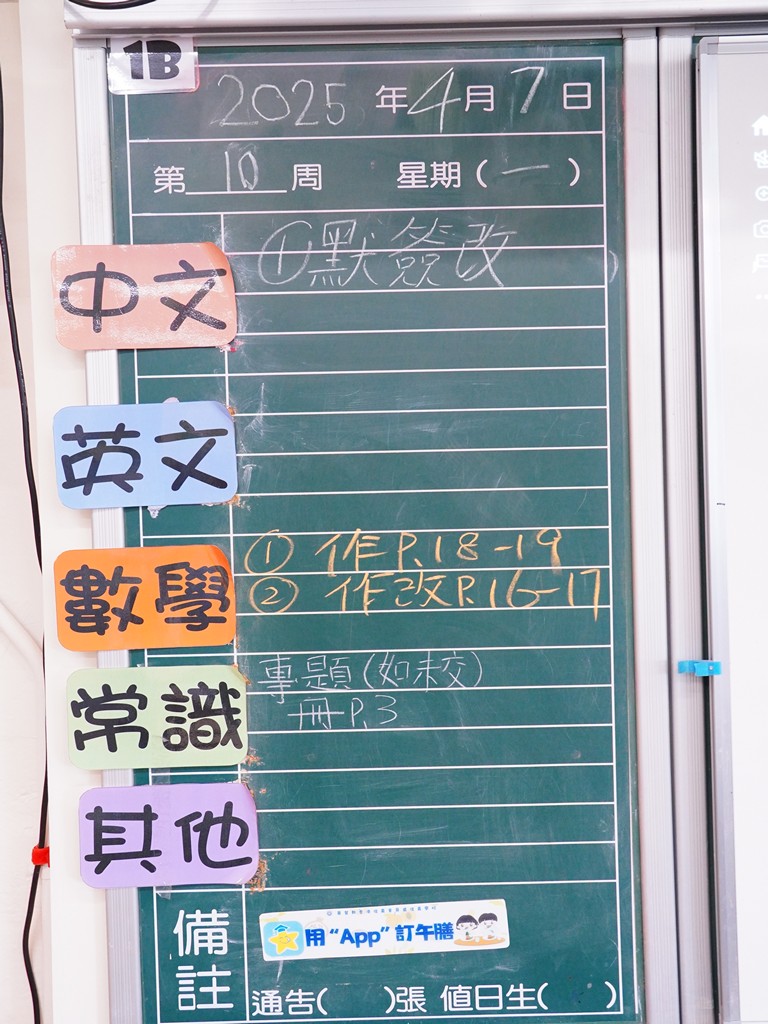 1B
2025年4月7日
第10周 星期(一)
中文 ①默簽改
英文
數學 ①作P.18-19
②作改P.16-17
常識 專題(如未交)
冊P.3
其他
備註
用“App”訂午膳
通告( )張 值日生( )